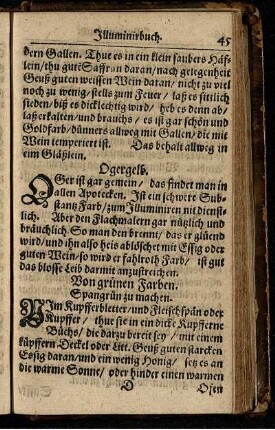 Illuminirbuch. 45
dern Gallen. Thue es in ein klein saubers Häf-
lein/thu gutē Saffran daran/nach gelegenheit
Geuß guten weissen Wein daran/nicht zu viel
noch zu wenig/stells zum Feuer/laß es sittlich
sieden/biß es dicklechtig wird/heb es denn ab/
laß erkalten/und brauchs/es ist gar schön und
Goldfarb/dünners allweg mit Gallen/die mit
Wein temperiert ist. Das behalt allweg in
eim Gläßlein.
Ogergelb.
OGer ist gar gemein/das findet man in
allen Apotecken. Ist ein schwere Sub-
stantz Farb/zum Illuminiren nit dienst-
lich. Aber den Flachmalern gar nützlich und
bräuchlich. So man den brennt/das er glüend
wird/und ihn also heis ablöschet mit Essig oder
guten Wein/so wird er fahlroth Farb/ist gut
das blosse Leib darmit anzustreichen.
Von grünen Farben.
Spangrün zu machen.
NIm Kupfferbletter/und Fleischspän oder
Kupffer/thue sie in ein dicke Kupfferne
Büchs/die darzu bereit sey/mit einem
küpffern Deckel oder Litt. Geuß guten starcken
Essig daran/und ein wenig Honig/setz es an
die warme Sonne/oder hinder einen warmen
D Ofen